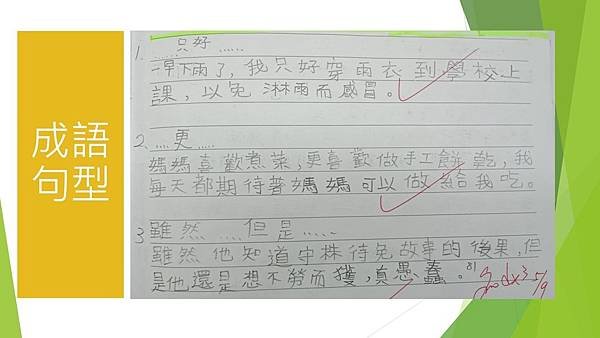 成語
句型
1. ……只好……
一早下雨了，我只好穿雨衣到學校上
課，以免淋雨而感冒。
2. ……更……
媽媽喜歡煮菜，更喜歡做手工餅乾，我
每天都期待著媽媽可以做給我吃。
3 雖然……但是……
雖然他知道守株待兔故事的後果，但
是他還是想不勞而獲，真愚蠢。
Goodx3 5/9